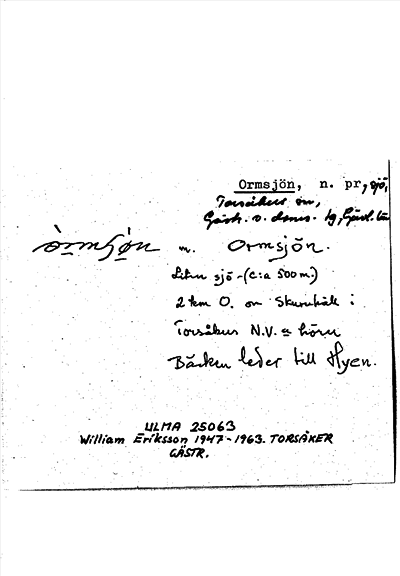 Ormsjön, n. pr., sjö,
Torsåkers sn,
Gästr. ö. doms. tg, Gävl. län
òrmʃøn m. Ormsjön.
Liten sjö - (c:a 500 m.)
2 km O. om i
Torsåkers N.V.a hörn
Bäcken leder till Hyen.
ULMA 25063
William Eriksson 1947-1963. TORSÅKER
GÄSTR.